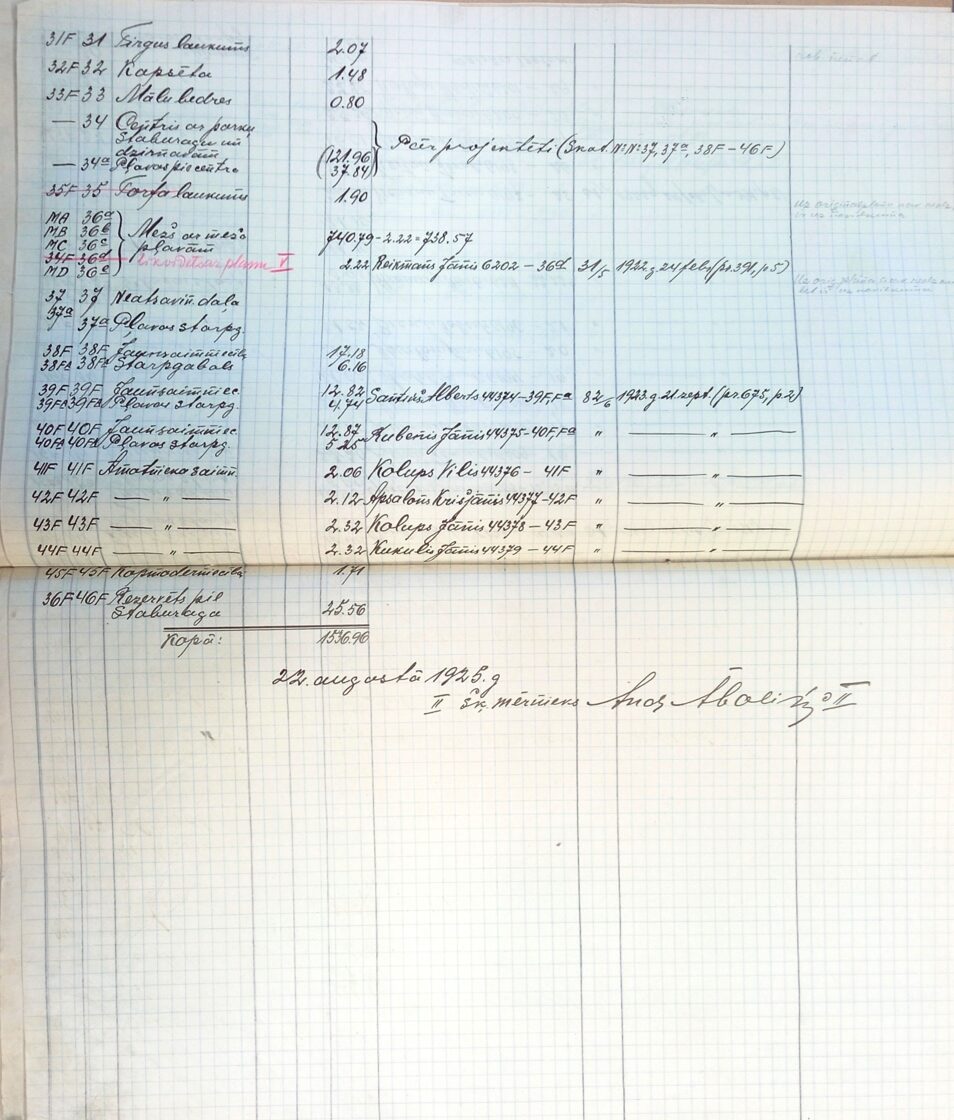 31F 31 Tirgus laukums 2.07
32F 32 Kapsēta 1.48
33F 33 Mālu bedres 0.80
— 34 Centrs ar parku
Staburagu un
dzirnavām (121.96
— 34a Pļavas pie centra 37.84)
Pārprojektēti (Skat. N:N: 37, 37a, 38F – 46F)
35F 35 Torfa laukums 1.90
MA 36a
MB 36b Mežs ar meža
MC 36c pļavām 740.79 – 2.22 = 738.57
34F 36d likvidēts ar planu V
MD 36e 2.22 Reikmans Jānis 6202 – 36d 31/5 1922 g. 24 febr. (pr. 391, p 5)
37 37 Neatsavin. daļa
37a 37a Pļavas starpg.
38F 38F Jaunsaimniecība 17.18
38Fa 38Fa Starpgabals 6.16
39F 39F Jaunsaimniec. 12.82
39Fa 39Fa Pļavas starpg. 4.74 Alberts 44374 – 39F, Fa 82/6 1923. g. 21 sept. (pr. 675, p 2)
40F 40F Jaunsaimniec. 12.87
40Fa 40Fa Pļavas starpg. 5.25 Kubenis Jānis 44375 – 40F, Fa " — " —
41F 41F Amatnieka saimn. 2.06 Kolups Vilis 44376 – 41F " — " —
42F 42F — " — 2.12 Apsalons Krišjānis 44377 – 42F " — " —
43F 43F — " — 2.32 Kolups Jānis 44378 – 43F " — " —
44F 44F — " — 2.32 Kukulis Jānis 44379 – 44F " — " —
45F 45F Kopmoderniecība 1.71
36F 46F Rezervēts pie
Staburaga 25.56
Kopā: 1536.96
22. augustā 1925. g
II šķ. mērnieks And Āboliņš II